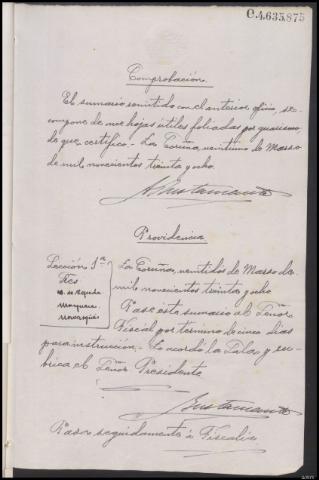 C.4.635.875
Comprobación.
El sumario remitido con el anterior oficio, se
compone de nueve hojas útiles foliadas por guarismo
de que certifico.- La Coruña, veintiuno de Marzo
de mil novecientos treinta y ocho.
Bustamante
Providencia
Sección 1ª
Sres
La Coruña, veintidos de Marzo de
mil novecientos treinta y ocho
Pase este sumario al Señor
Fiscal por termino de cinco dias
para instrucción. Lo acordó la Sala y ru-
brica el Señor Presidente
Bustamante
Pasa seguidamente á Fiscalía